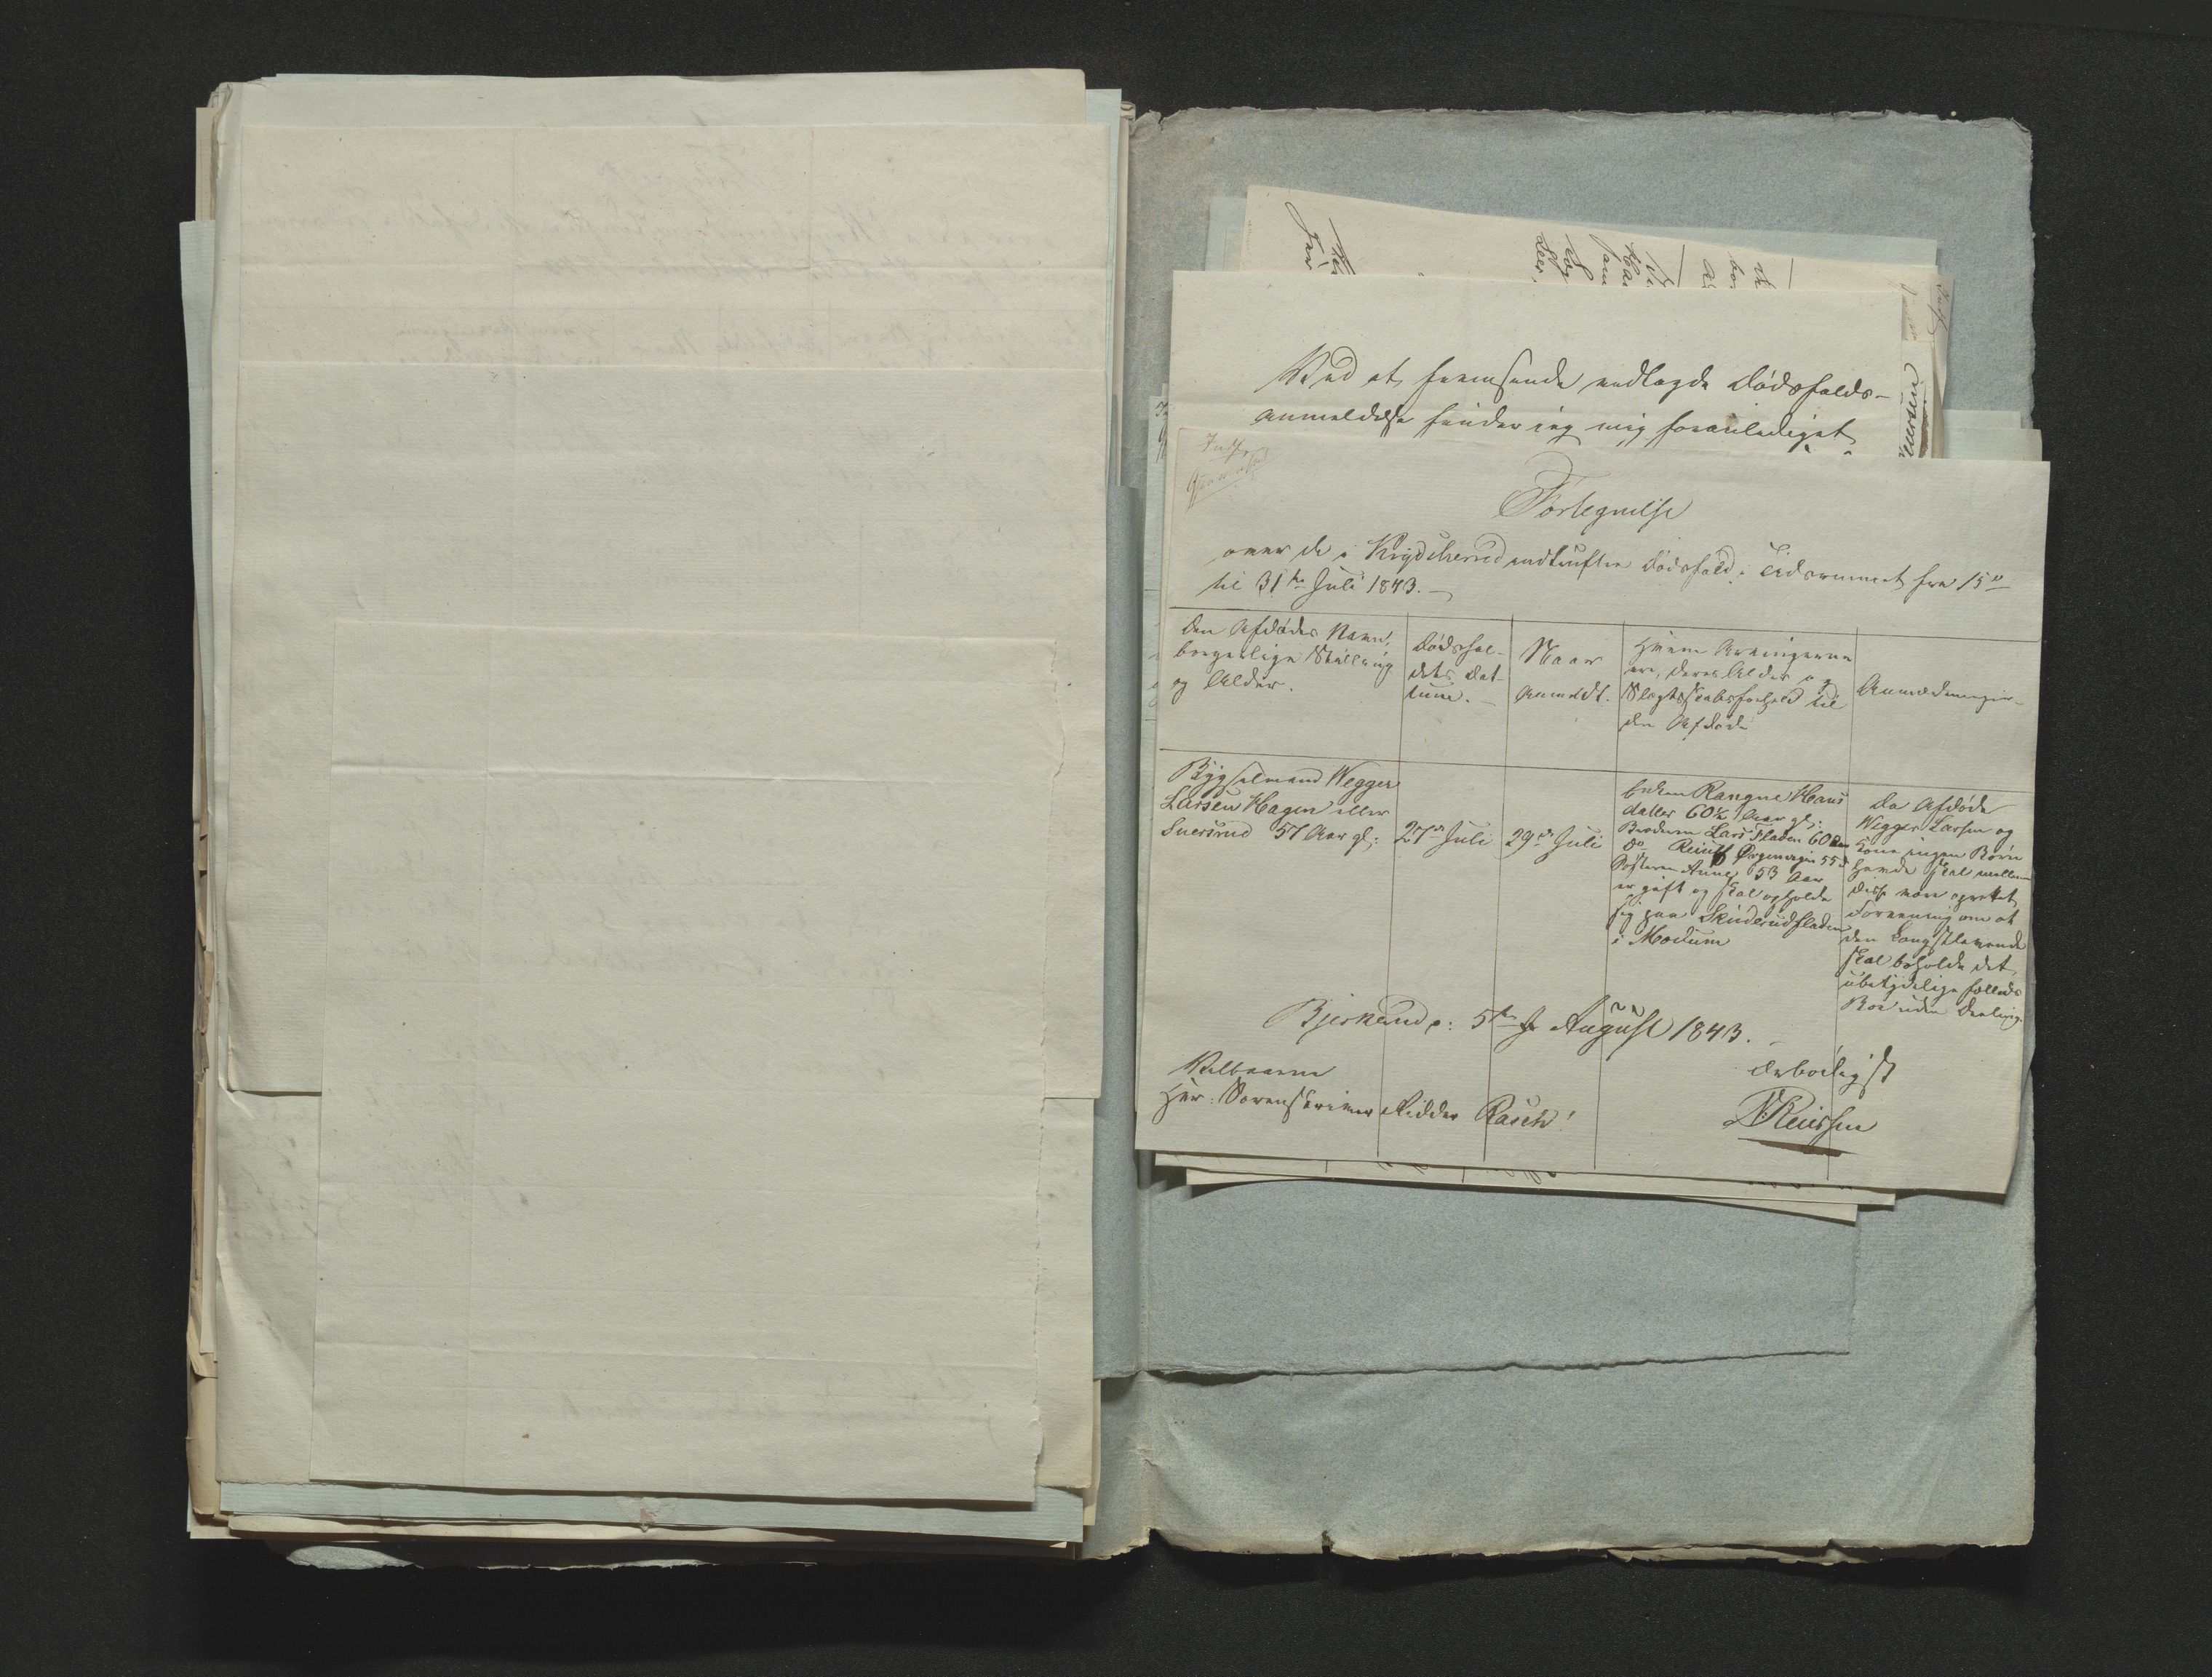 Ved at fremsende vedlagde Dødsfalds-
anmeldelse finder jeg mig foranlediget
Indf.
Fortegnelse
over de i Krydsherred indtrufne Dødsfald i Tidsrummet fra 15de
til 31te Juli 1843.
Den Afdødes Navn,
borgerlige Stilling
og Alder.
Dødsfal-
dets Dat-
tum.
Naar
Anmeldt.
Hvem Arvingerne
ere, deres Alder og
Slægtskabsforhold til
den Afdøde
Anmærkninger
Bygselmand Wegger
Larsen Hagen eller
Snersrud 57 Aar gl:
27de Juli
29de Juli
Enken Rangne Hans
datter 60 Aar gl:
Broderen Lars Fladen 60 Aar
Do
55
Søsteren Anne 53 Aar
er gift og skal opholde
sig paa Skinderudfladen
i Modum
Da Afdøde
Wegger Larsen og
Kone ingen Børn
havde skal mellem
disse være oprettet
Forening om at
den Længstlevende
skal beholde det
ubetydelige fælleds
Boe uden Deeling
Bjerkerud p: 5te August 1843.
Velbaarne
Herr Sorenskriver Ridder Rasch!
Ærbødigst